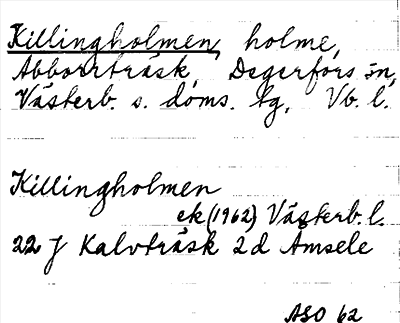 Killingholmen, holme,
Abborrträsk, Degerfors sn,
Västerb. s. doms. tg, Vb. l.
Killingholmen
ek (1962) Västerb. l.
22 J Kalvträsk 2d Åmsele
ASO 62